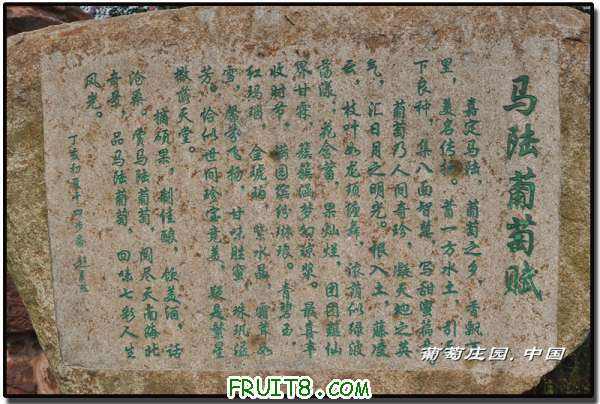 马陆葡萄赋
嘉定马陆,葡萄之乡,香飘
里,美名传扬。昔一方水土,引
下良种,集八面智慧,写甜蜜
葡萄乃人间奇珍,凝天地之英
气,汇日月之明光。根入土,藤凌
云,枝叶如龙须缠舞,浓荫似绿波
荡漾。花含蓄,果灿烂,团团
甘霖,簇簇涵梦幻琼浆。最喜丰
收时节,满园缤纷琳琅。青碧玉,
红玛瑙,金琥珀,紫水晶,霜
雪,馨香飞扬,甘味胜蜜,珠玑溢
芳。恰似世间珍宝竞美,疑是繁星
撒落天堂。
摘硕果,制佳酿,饮美酒,话
沧桑。赏马陆葡萄,阅尽天南海北
奇景,品马陆葡萄,回味七彩人生
风光。
丁亥
葡萄庄园.中国
FRUIT8.COM